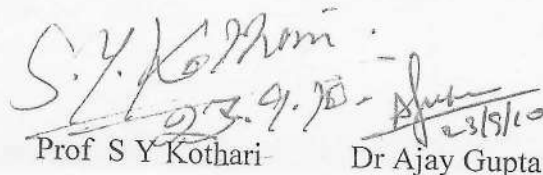 S. Y. Kothari.
23.9.10. AGupta
23/9/10
Prof S Y Kothari Dr Ajay Gupta